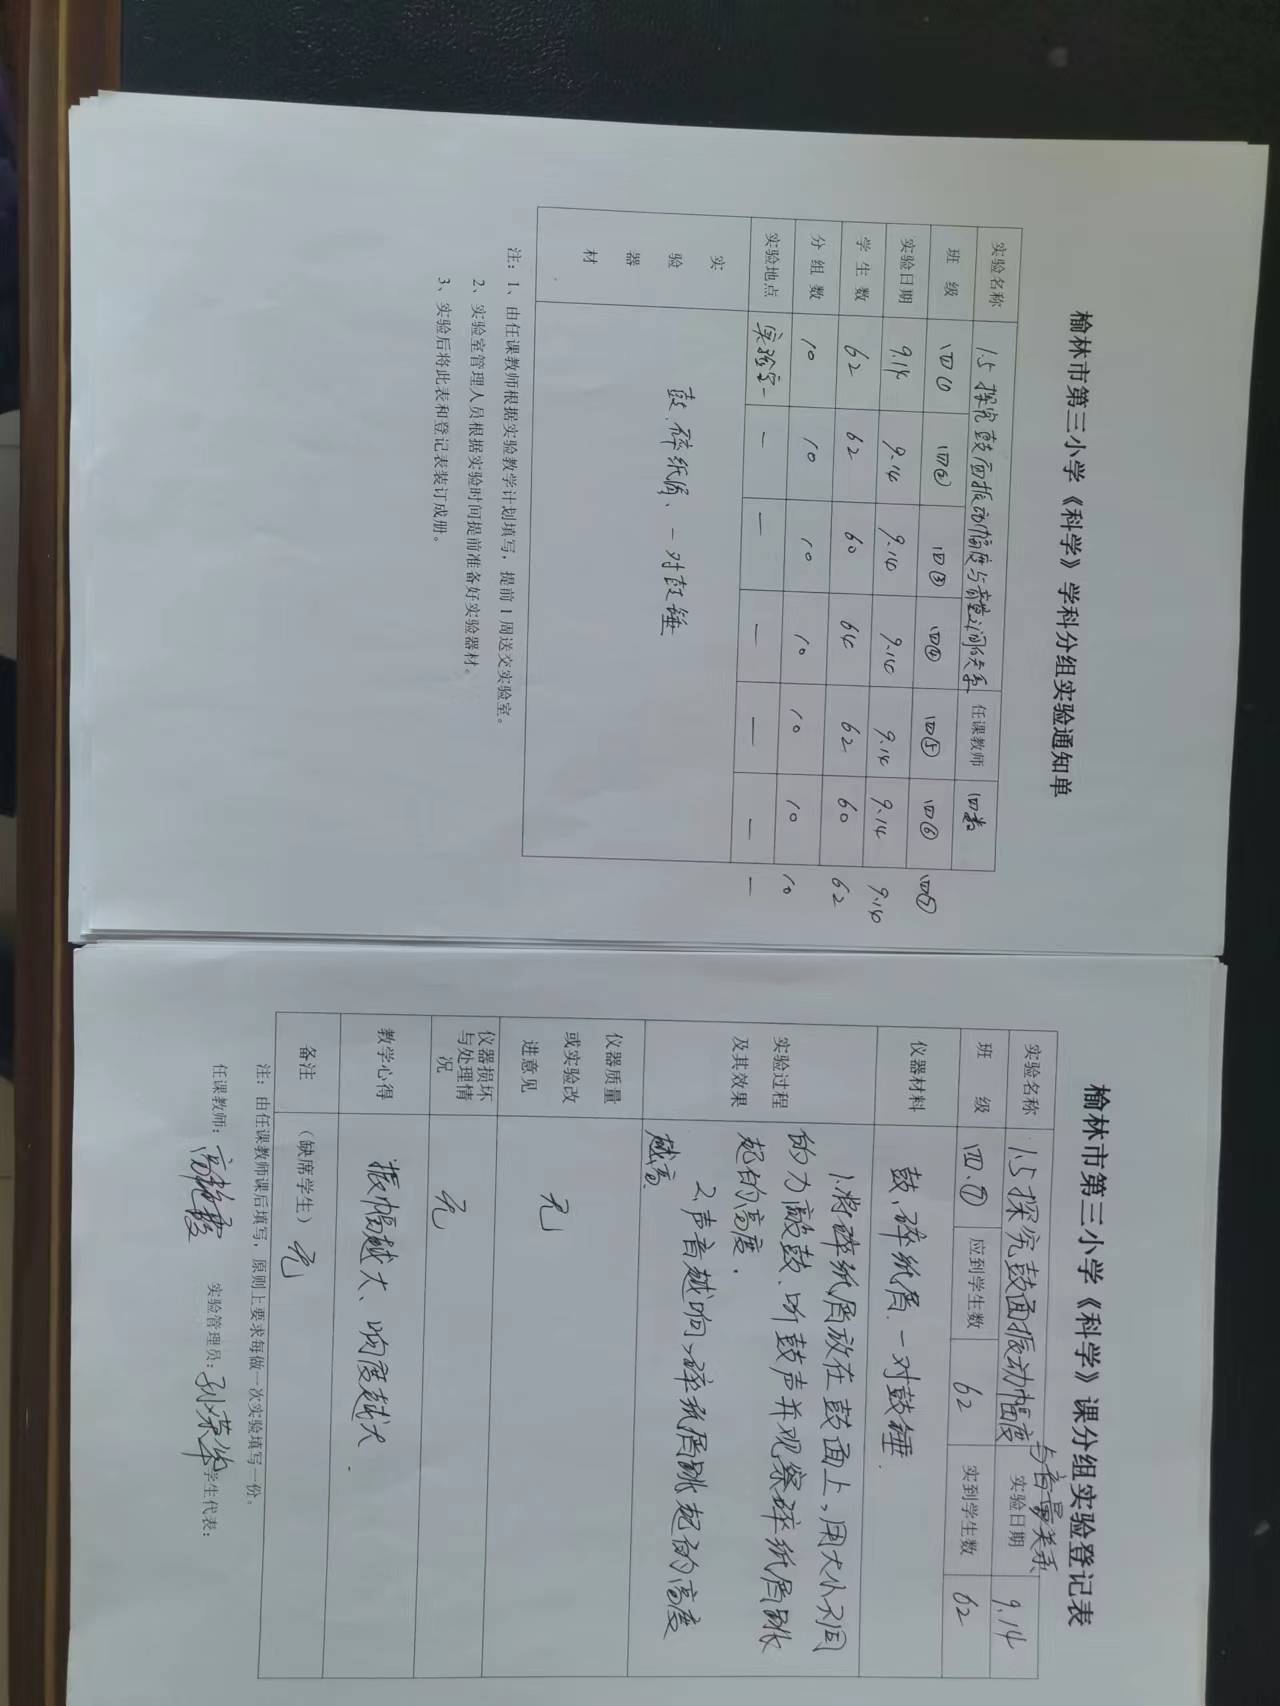 榆林市第三小学《科学》学科分组实验通知单
实验名称 1.5探究鼓面振动幅度与音量之间关系 任课教师
班 级 四① 四② 四③ 四④ 四⑤ 四⑥ 四⑦
实验日期 9.14 9.14 9.14 9.14 9.14 9.14 9.14
学 生 数 62 62 60 64 62 60 62
分 组 数 10 10 10 10 10 10 10
实验地点 实验室一 一 一 一 一 一 一
实验器材 鼓、碎纸屑、一对鼓锤
注：1、由任课教师根据实验教学计划填写，提前1周送交实验室。
2、实验室管理人员根据实验时间提前准备好实验器材。
3、实验后将此表和登记表装订成册。
榆林市第三小学《科学》课分组实验登记表
实验名称 1.5探究鼓面振动幅度与音量关系 实验日期 9.14
班 级 四.⑦ 应到学生数 62 实到学生数 62
仪器材料 鼓、碎纸屑、一对鼓锤.
实验过程及其效果 1.将碎纸屑放在鼓面上，用大小不同
的力敲鼓、听鼓声并观察碎纸屑跳
起的高度.
2.声音越响，碎纸屑跳起的高度
越高.
仪器质量或实验改进意见 无
仪器损坏与处理情况 无
教学心得 振幅越大、响度越大.
备注 （缺席学生）无
注：由任课教师课后填写，原则上要求每做一次实验填写一份。
任课教师：高艳霞 实验管理员：孙荣华 学生代表：